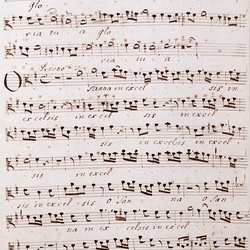 glo
ria tu a glo
ria tu a.
Osanna in excel sis in
excelsis in excel sis
sis in excelsis in excel
sis in excel
sis in excel sis O san na O san
na in ex celsis in excel sis